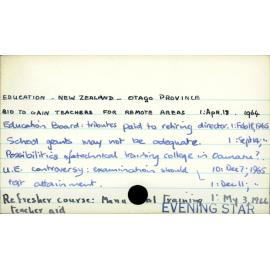 EDUCATION - NEW ZEALAND - OTAGO PROVINCE
BID TO GAIN TEACHERS FOR REMOTE AREAS 1: Apr. 13. 1964
Education Board: tributes paid to retiring director. 1: Feb 18, 1965
School grants may not be adequate. 1: Sept
Possibilities of technical training college in Oamaru?
U.E. controversy: examination should 10: Dec 7; 1965
top attainment. 1: Dec 11,
Refresher course: Manual Training 1: My 3, 1966
Teacher aid
EVENING STAR